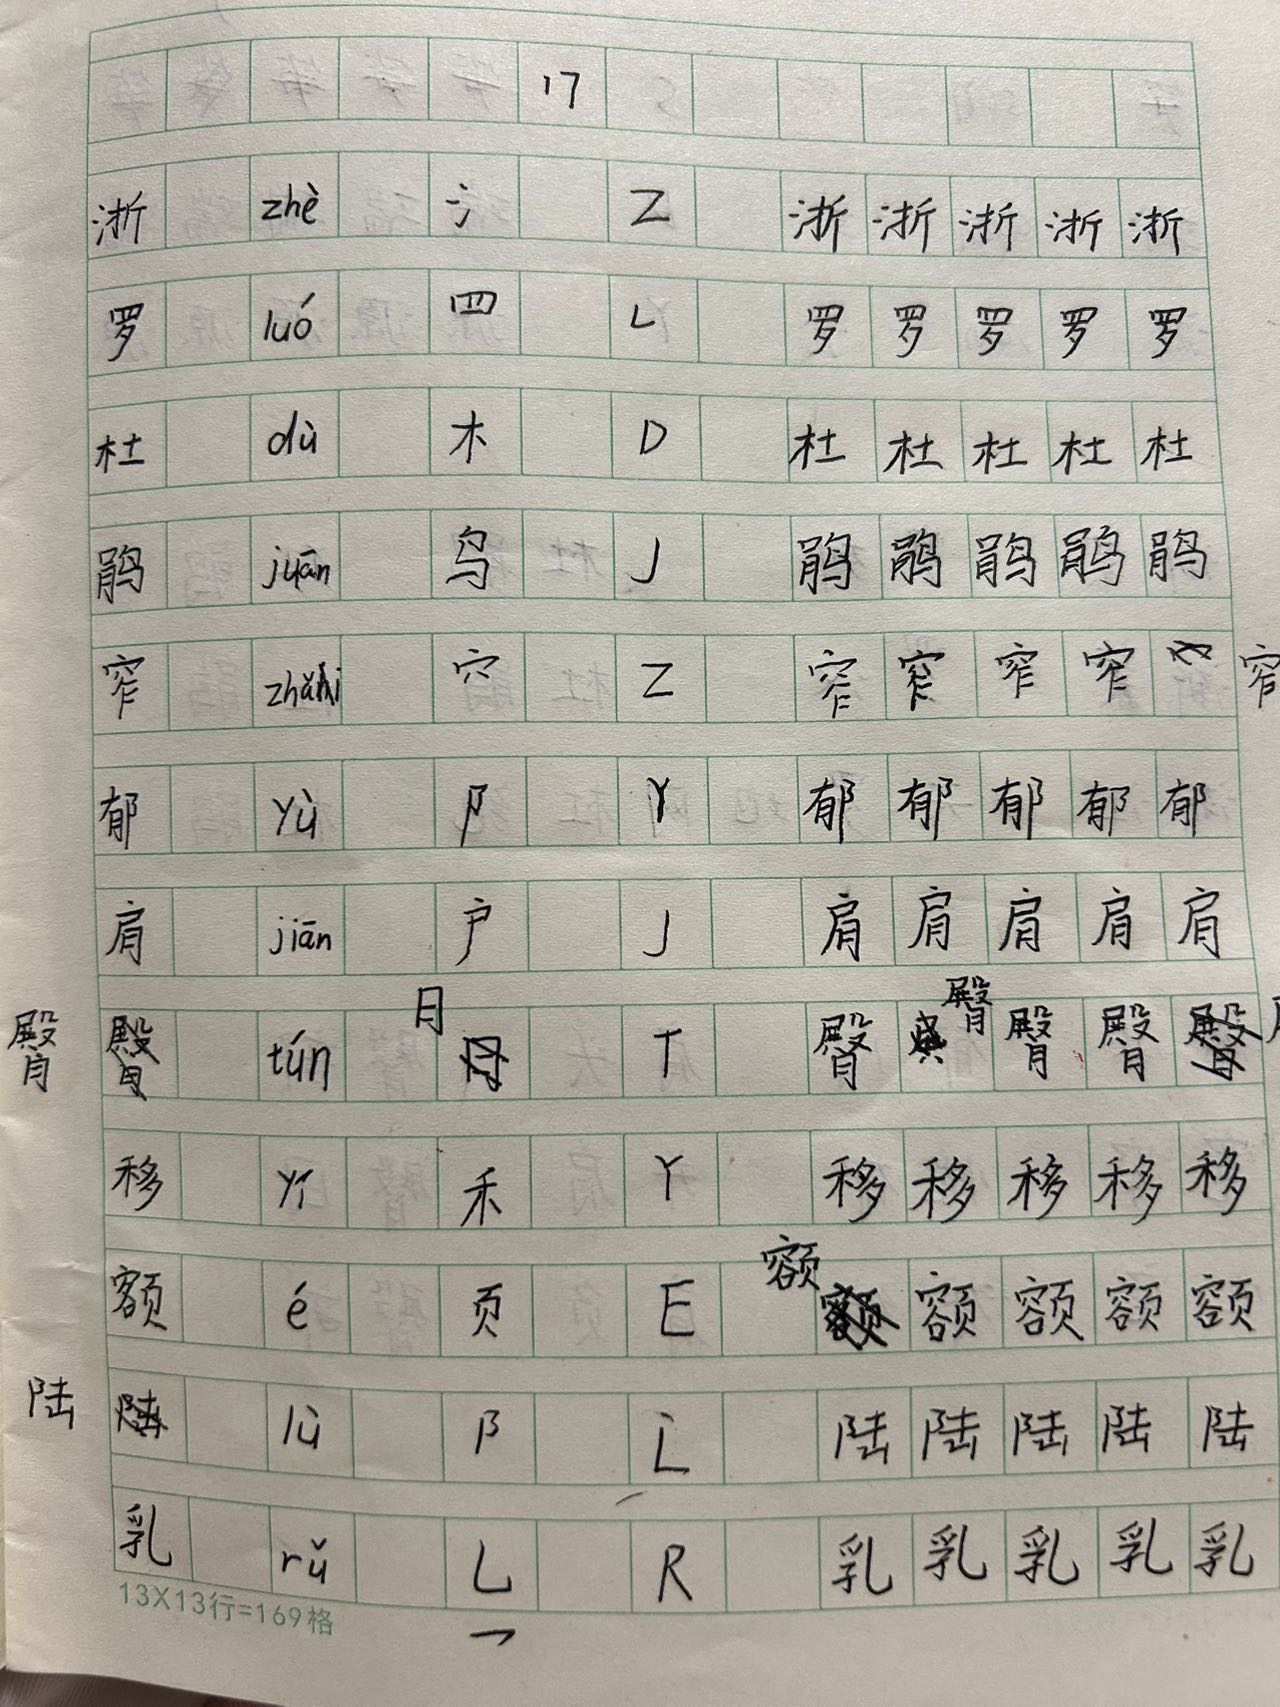 17
浙 zhè 氵 Z 浙 浙 浙 浙 浙
罗 luó 罒 L 罗 罗 罗 罗 罗
杜 dù 木 D 杜 杜 杜 杜 杜
鹃 juān 鸟 J 鹃 鹃 鹃 鹃 鹃
窄 zhǎi 穴 Z 窄 窄 窄 窄 窄
郁 yù 阝 Y 郁 郁 郁 郁 郁
肩 jiān 户 J 肩 肩 肩 肩 肩
臀 tún 月 T 臀 臀 臀 臀
移 yí 禾 Y 移 移 移 移 移
额 é 页 E 额 额 额 额 额
陆 lù 阝 L 陆 陆 陆 陆 陆
乳 rǔ 乚 R 乳 乳 乳 乳 乳
13X13行=169格